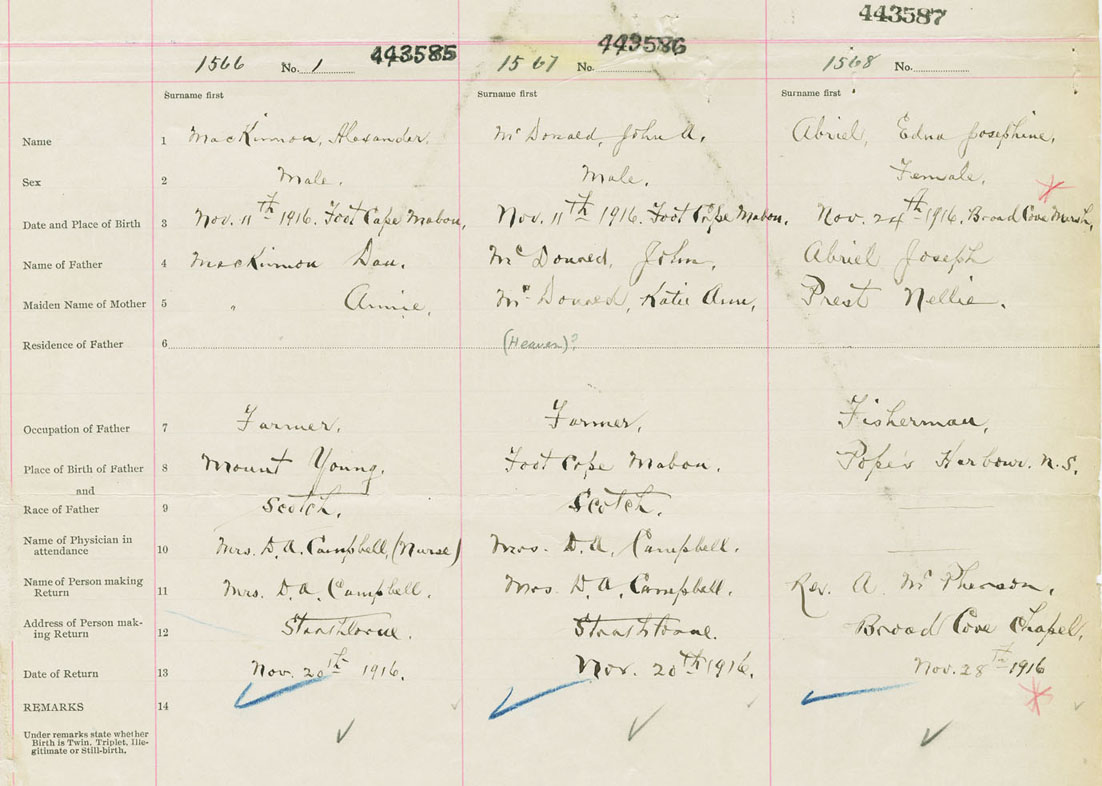 443587
1566 No. 1 443585 1567 No. 443586 1568 No.
Surname first Surname first Surname first
Name 1 MacKinnon, Alexander. Mc Donald, John A. Abriel, Edna Josephine.
Sex 2 Male. Male. Female.
Date and Place of Birth 3 Nov. 11th 1916. Foot Cape Mabou, Nov. 11th 1916. Foot Cape Mabou. Nov. 24th 1916. Broad Cove Marsh,
Name of Father 4 MacKinnon Dan. Mc Donald, John. Abriel Joseph
Maiden Name of Mother 5 " Annie. Mc Donald, Katie Ann, Prest Nellie.
Residence of Father 6 (Heaven)?
Occupation of Father 7 Farmer. Farmer. Fisherman.
Place of Birth of Father 8 Mount Young. Foot Cape Mabou. Pope's Harbour. N.S.
and
Race of Father 9 Scotch. Scotch.
Name of Physician in
attendance 10 Mrs. D. A. Campbell, (Nurse) Mrs. D. A. Campbell.
Name of Person making
Return 11 Mrs. D. A. Campbell. Mrs. D. A. Campbell. Rev. A. Mc Pherson.
Address of Person mak-
ing Return 12 Strathlorne. Strathlorne. Broad Cove Chapel.
Date of Return 13 Nov. 20th 1916. Nov. 20th 1916. Nov. 28th 1916
REMARKS 14
Under remarks state whether
Birth is Twin, Triplet, Ille-
gitimate or Still-birth.